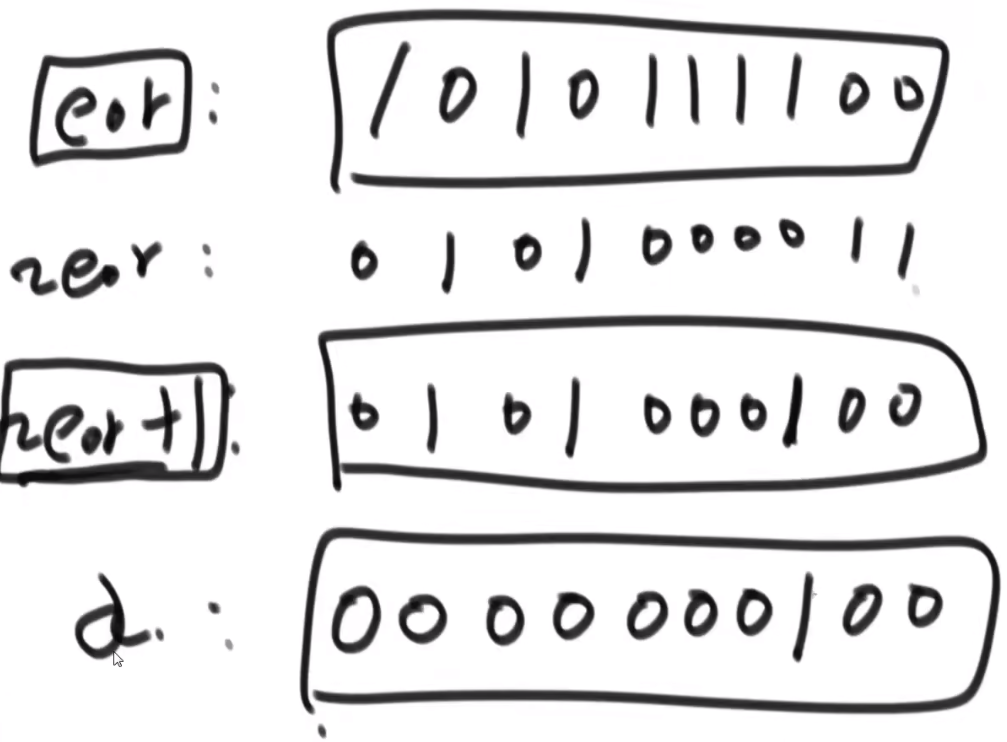 eor : 1010111100
~eor : 0101000011
~eor+1 : 0101000100
d. : 0000000100